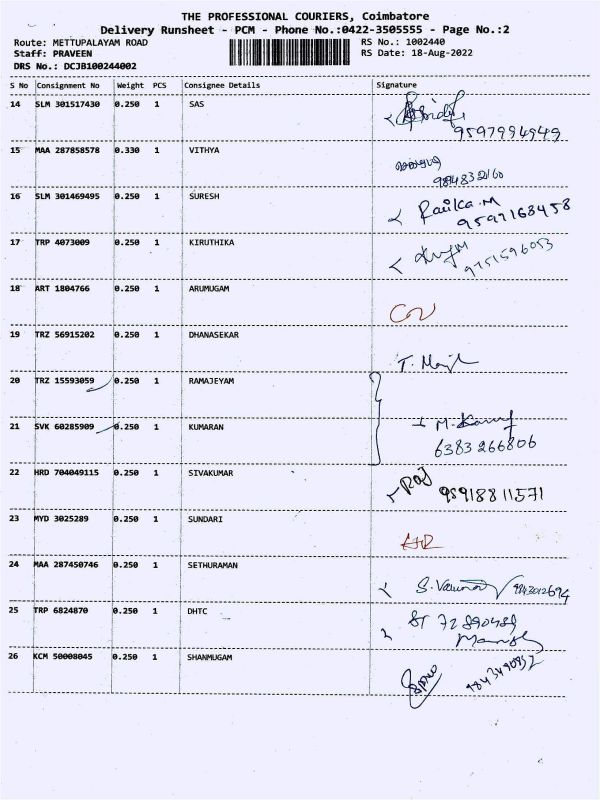 THE PROFESSIONAL COURIERS, Coimbatore
Delivery Runsheet - PCM - Phone No.:0422-3505555 - Page No.:2
Route: METTUPALAYAM ROAD RS No.: 1002440
Staff: PRAVEEN RS Date: 18-Aug-2022
DRS No.: DCJB100244002
S No Consignment No Weight PCS Consignee Details Signature
14 SLM 301517430 0.250 1 SAS
9597994949
15 MAA 287858578 0.330 1 VITHYA
9894832160
16 SLM 301469495 0.250 1 SURESH
9597168458
17 TRP 4073009 0.250 1 KIRUTHIKA
9751596053
18 ART 1804766 0.250 1 ARUMUGAM
19 TRZ 56915202 0.250 1 DHANASEKAR
20 TRZ 15593059 0.250 1 RAMAJEYAM
21 SVK 60285909 0.250 1 KUMARAN
6383266806
22 HRD 704049115 0.250 1 SIVAKUMAR
Raj
95918811571
23 MYD 3025289 0.250 1 SUNDARI
24 MAA 287450746 0.250 1 SETHURAMAN
9843012694
25 TRP 6824870 0.250 1 DHTC
26 KCM 50008045 0.250 1 SHANMUGAM